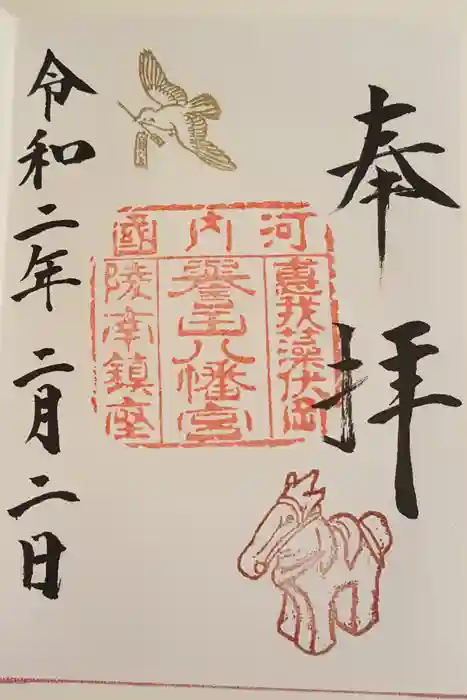 奉拝
河内國
惠我藻伏岡
譽田八幡宮
陵南鎮座
令和二年二月二日